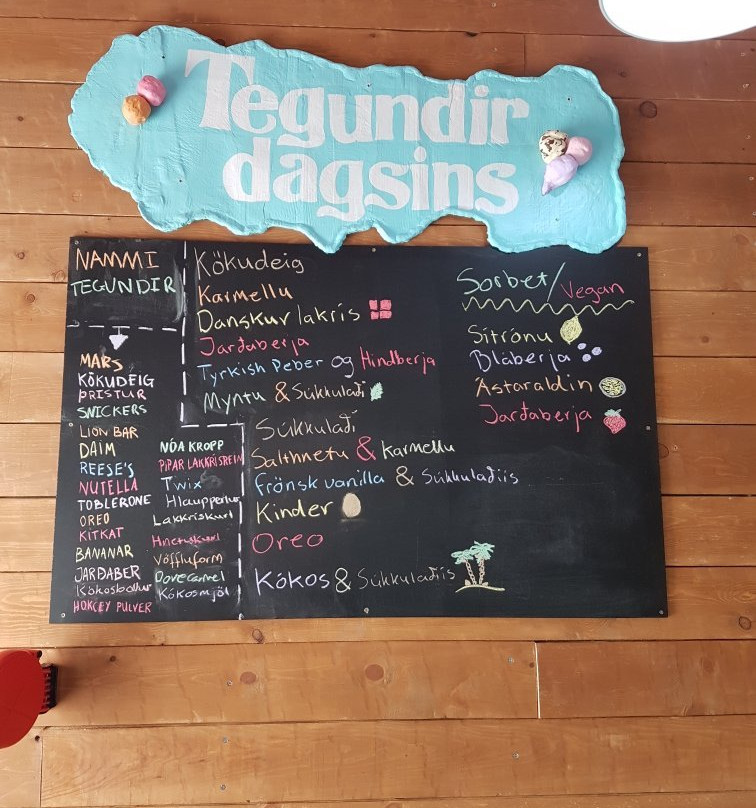 Tegundir
dagsins
NAMMI
TEGUNDIR
MARS
KÖKUDEIG
PRISTUR
SNICKERS
LION BAR
DAIM
REESE'S
NUTELLA
TOBLERONE
OREO
KITKAT
BANANAR
JARÐABER
Kókosbollur
HOKCEY PULVER
NÓA KROPP
PIPAR LAKKRÍSREIM
Twix
Hlaupperlur
Lakkrískurl
Hnetukurl
Vöffluform
Kókosmjöl
Kökudeig
Karmellu
Danskur lakrís
Jarðaberja
Tyrkish Peber og Hindberja
Myntu & Súkkulaði
Súkkulaði
Salthnetu & Karmellu
Frönsk vanilla & Súkkulaðiís
Kinder
Oreo
Kókos & Súkkulaðiís
Sorbet/Vegan
Sítrónu
Bláberja
Ástaraldin
Jarðaberja